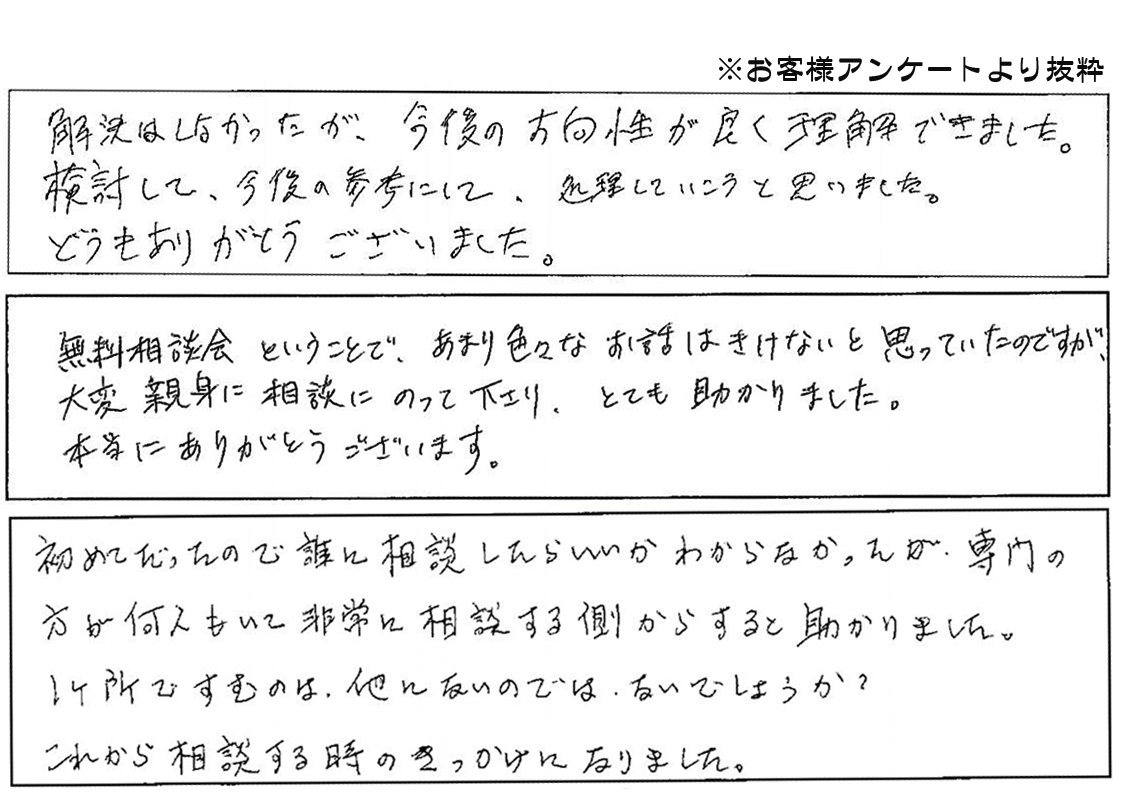 ※お客様アンケートより抜粋
解決はしなかったが、今後の方向性が良く理解できました。
検討して、今後の参考にして、処理していこうと思いました。
どうもありがとうございました。
無料相談会ということで、あまり色々なお話はきけないと思っていたのですが、
大変親身に相談にのって下さり、とても助かりました。
本当にありがとうございます。
初めてだったので誰に相談したらいいかわからなかったが、専門の
方が何人もいて非常に相談する側からすると助かりました。
1ヶ所ですむのは、他にないのでは、ないでしょうか?
これから相談する時のきっかけになりました。